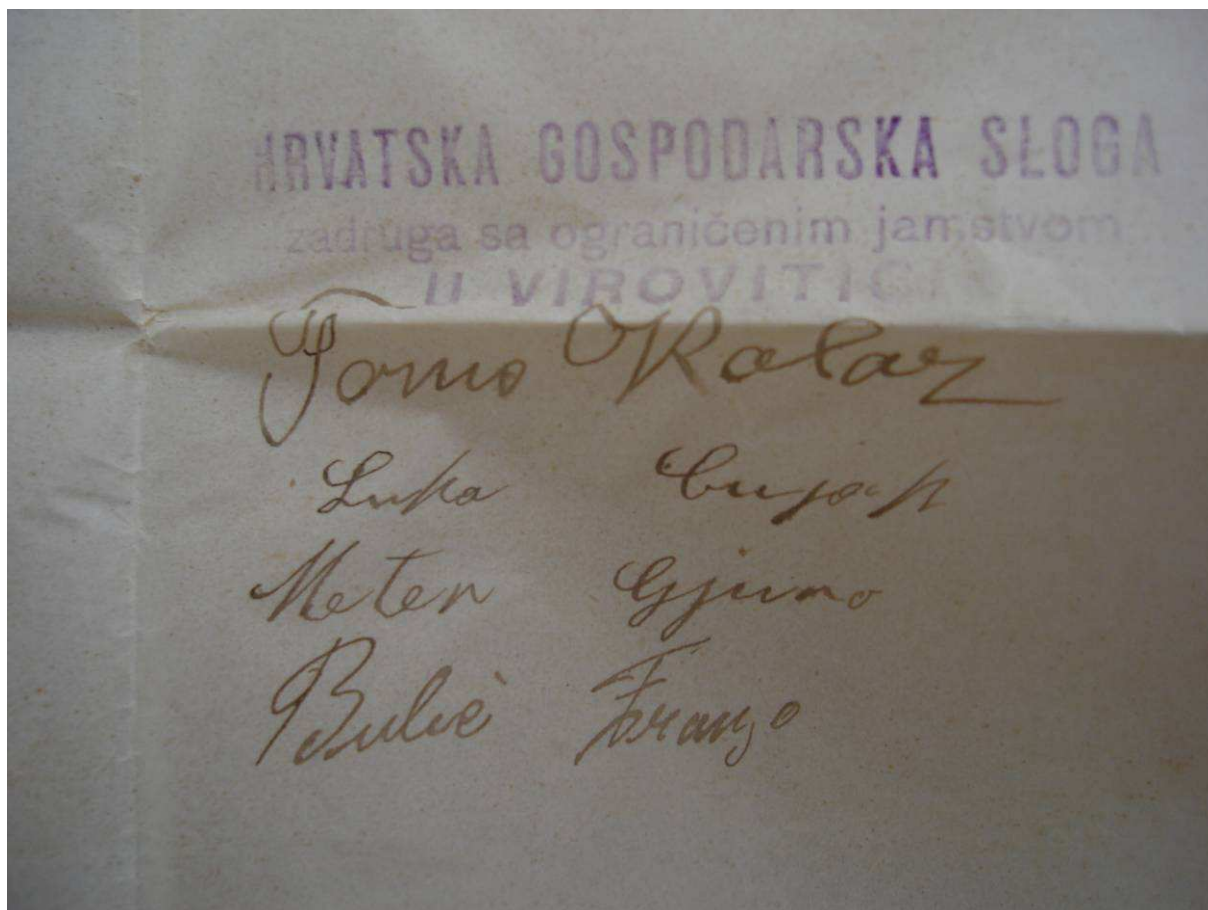 HRVATSKA GOSPODARSKA SLOGA
zadruga sa ograničenim jamstvom
U VIROVITICI
Tomo Kolar
Luka Cujak
Meter Gjuro
Bulić Franjo